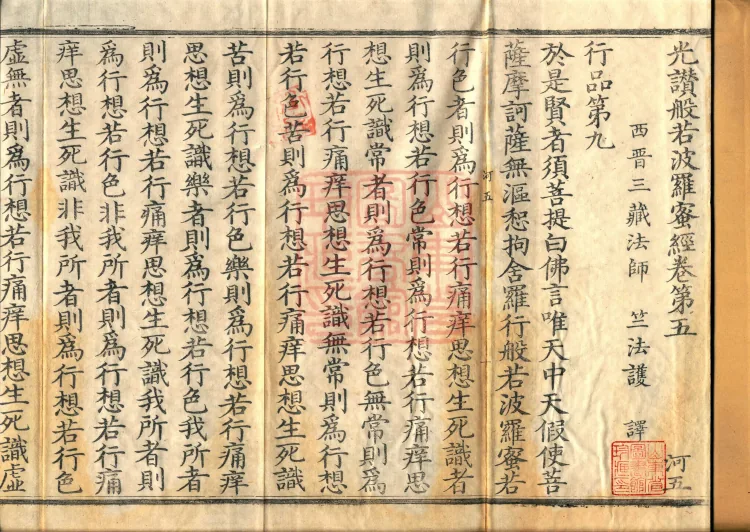 光讃般若波羅蜜經卷第五 河五
西晋三藏法師 竺法護 譯
行品第九
於是賢者須菩提白佛言唯天中天假使菩
薩摩訶薩無漚惒拘舍羅行般若波羅蜜若
河五
行色者則爲行想若行痛痒思想生死識者
則爲行想若行色常則爲行想若行痛痒思
想生死識常者則爲行想若行色無常則爲
行想若行痛痒思想生死識無常則爲行想
若行色苦則爲行想若行痛痒思想生死識
苦則爲行想若行色樂則爲行想若行痛痒
思想生死識樂者則爲行想若行色我所者
則爲行想若行痛痒思想生死識我所者則
爲行想若行色非我所者則爲行想若行痛
痒思想生死識非我所者則爲行想若行色
虛無者則爲行想若行痛痒思想生死識虛